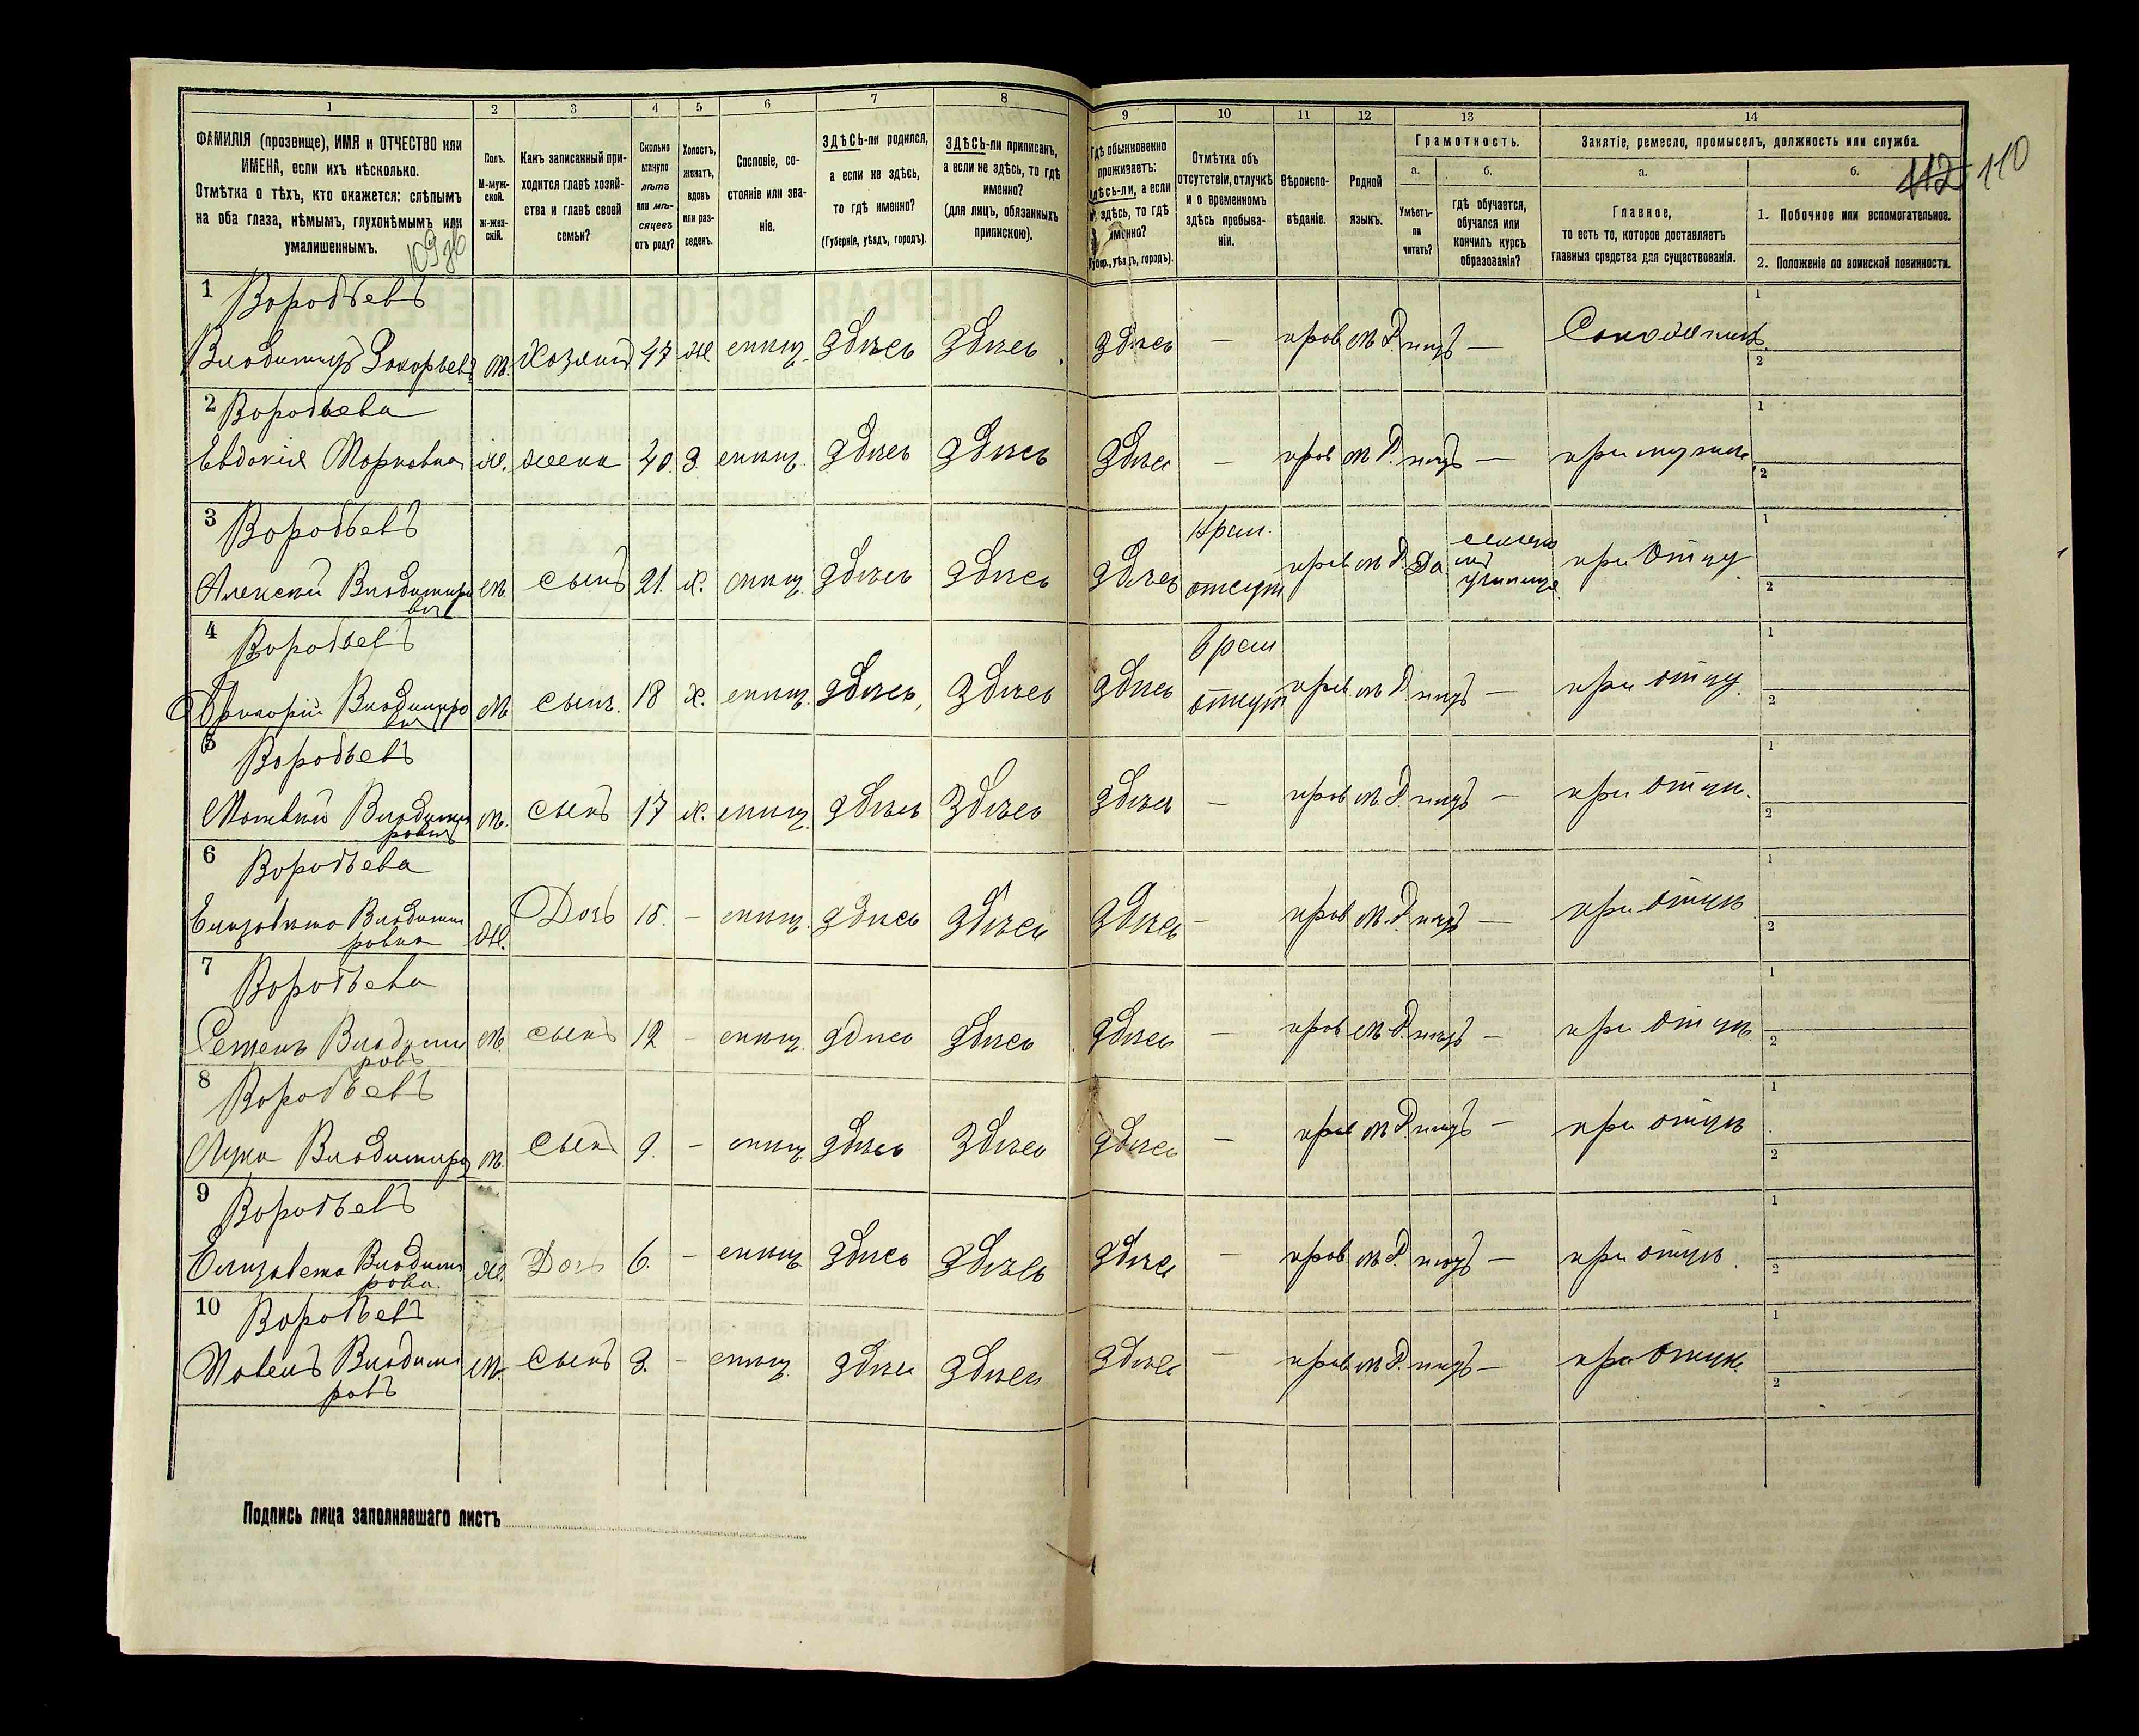 1 2 3 4 5 6 7 8 9 10 11 12 13 14
ФАМИЛІЯ (прозвище), ИМЯ и ОТЧЕСТВО или
ИМЕНА, если ихъ нѣсколько.
Отмѣтка о тѣхъ, кто окажется: слѣпымъ
на оба глаза, нѣмымъ, глухонѣмымъ или
умалишеннымъ.
109 об
Полъ.
М-муж-
ской.
ж-жен-
скій.
Какъ записанный при-
ходится главѣ хозяй-
ства и главѣ своей
семьи?
Сколько
минуло
лѣтъ
или мѣ-
сяцевъ
отъ роду?
Холостъ,
женатъ,
вдовъ
или раз-
веденъ.
Сословіе, со-
стояніе или зва-
ніе.
ЗДѢСЬ-ли родился,
а если не здѣсь,
то гдѣ именно?
(Губернія, уѣздъ, городъ).
ЗДѢСЬ-ли приписанъ,
а если не здѣсь, то гдѣ
именно?
(для лицъ, обязанныхъ
припискою).
Гдѣ обыкновенно
проживаетъ:
здѣсь-ли, а если
не здѣсь, то гдѣ
именно?
(Губер., уѣздъ, городъ).
Отмѣтка объ
отсутствіи, отлучкѣ
и о временномъ
здѣсь пребыва-
ніи.
Вѣроиспо-
вѣданіе.
Родной
языкъ.
Грамотность.
а. б.
Умѣетъ-
ли
читать?
гдѣ обучается,
обучался или
кончилъ курсъ
образованія?
Занятіе, ремесло, промыселъ, должность или служба.
а. б.
112 110
Главное,
то есть то, которое доставляетъ
главныя средства для существованія.
1. Побочное или вспомогательное.
2. Положеніе по воинской повинности.
1 Воробьевъ 1
Владимиръ Захарьевъ м. Хозяинъ 47 ж здѣсь здѣсь здѣсь — прав м Р. —
2
2 Воробьева 1
Евдокія Марковна ж. жена 40. з. здѣсь здѣсь здѣсь — прав м Р. — при муже
2
3 Воробьевъ Врем. 1
Алексѣй Владимиро м. сынъ 21. х. здѣсь здѣсь здѣсь отсут прав м Р. Да. училище при отцу
вич 2
4 Воробьевъ Врем 1
Григорій Владимиро м сынъ. 18 х. здѣсь, здѣсь здѣсь отсут прав м Р — при отцу.
вич 2
5 Воробьевъ 1
Матвѣй Владими м. сынъ 17 х. здѣсь здѣсь здѣсь — прав м Р. — при отцѣ.
ровичъ 2
6 Воробьева 1
Елизавета Владими ж. Дочь 15. — здѣсь здѣсь здѣсь — прав м. Р. — при отцѣ
ровна 2
7 Воробьева 1
Семенъ Владими м. сынъ 12 — здѣсь здѣсь здѣсь — прав м Р. — при отцѣ.
ровъ 2
8 Воробьевъ 1
Лука Владимиро м. сынъ 9. — здѣсь здѣсь здѣсь — прав м Р. — при отцѣ
2
9 Воробьевъ 1
Елизавета Владими ж. Дочь 6. — здѣсь здѣсь здѣсь — прав м Р. — при отцѣ.
рова. 2
10 Воробьевъ 1
Павелъ Владими м. сынъ 3. — здѣсь здѣсь здѣсь — прав м Р. — при отцѣ
ровъ 2
Подпись лица заполнявшаго листъ